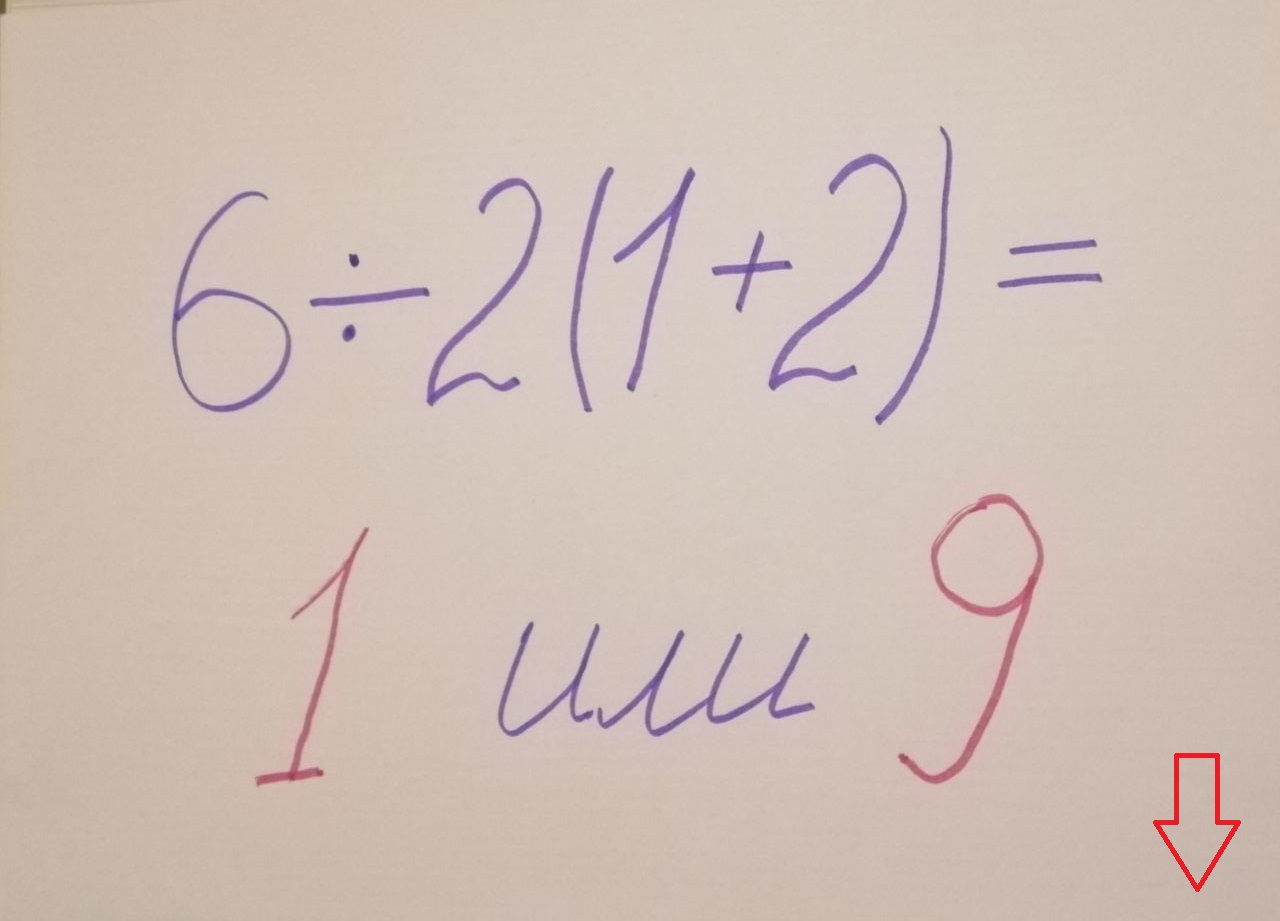 6÷2(1+2)=
1 или 9